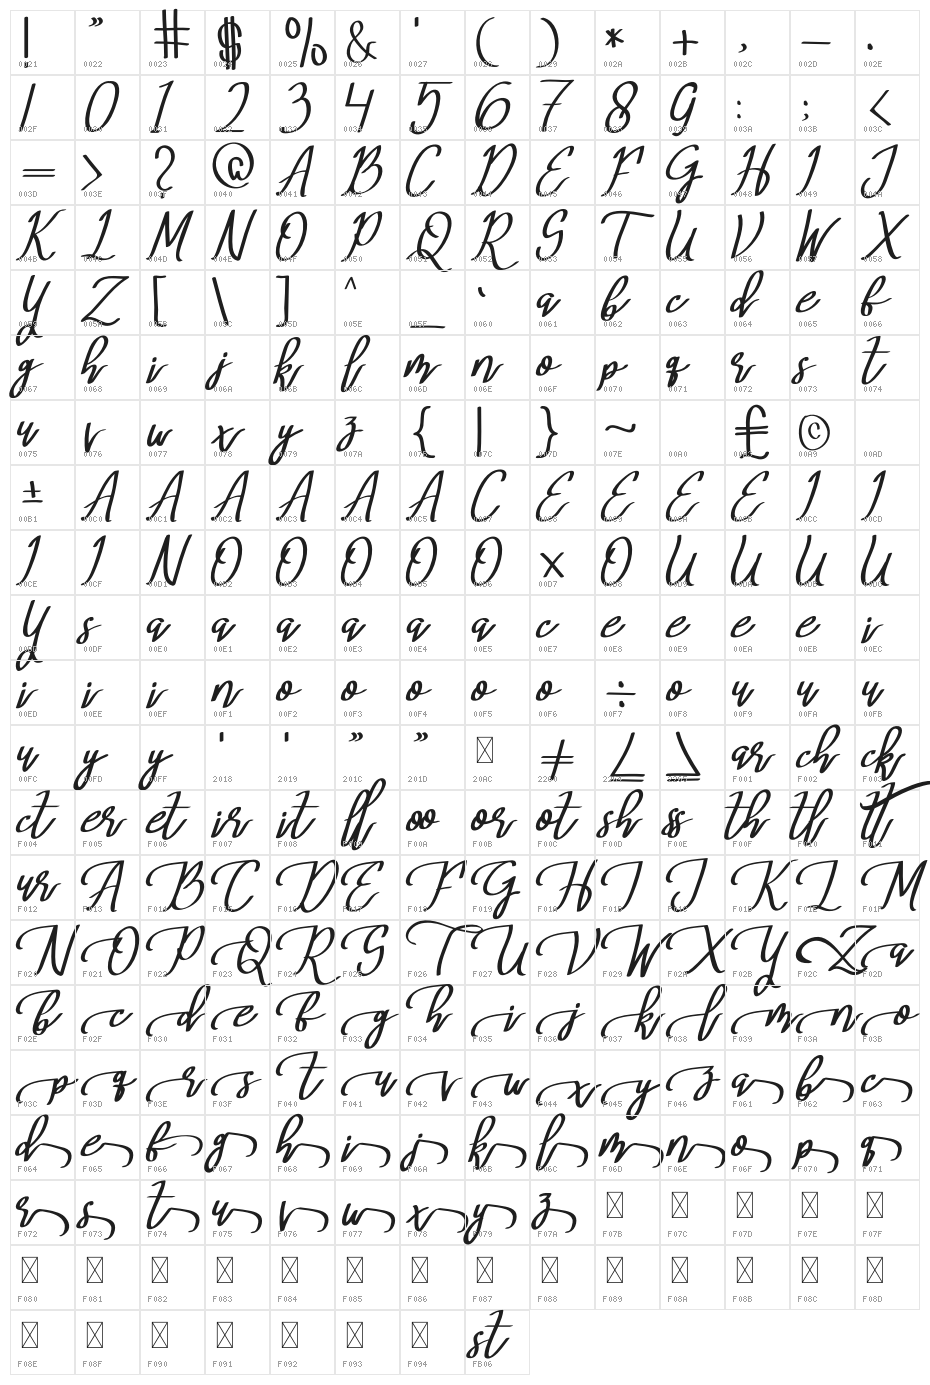 ! " # $ % & ' ( ) * + , - .
0021 0022 0023 0024 0025 0026 0027 0028 0029 002A 002B 002C 002D 002E
/ 0 1 2 3 4 5 6 7 8 9 : ; <
002F 0030 0031 0032 0033 0034 0035 0036 0037 0038 0039 003A 003B 003C
= > ? @ A B C D E F G H I J
003D 003E 003F 0040 0041 0042 0043 0044 0045 0046 0047 0048 0049 004A
K L M N O P Q R S T U V W X
004B 004C 004D 004E 004F 0050 0051 0052 0053 0054 0055 0056 0057 0058
Y Z [ \ ] ^ _ ` a b c d e f
0059 005A 005B 005C 005D 005E 005F 0060 0061 0062 0063 0064 0065 0066
g h i j k l m n o p q r s t
0067 0068 0069 006A 006B 006C 006D 006E 006F 0070 0071 0072 0073 0074
u v w x y z { | } ~ £ ©
0075 0076 0077 0078 0079 007A 007B 007C 007D 007E 00A0 00A3 00A9 00AD
± A A A A A A C E E E E I I
00B1 00C0 00C1 00C2 00C3 00C4 00C5 00C7 00C8 00C9 00CA 00CB 00CC 00CD
I I N O O O O O × O U U U U
00CE 00CF 00D1 00D2 00D3 00D4 00D5 00D6 00D7 00D8 00D9 00DA 00DB 00DC
Y s a a a a a a c e e e e i
00DD 00DF 00E0 00E1 00E2 00E3 00E4 00E5 00E7 00E8 00E9 00EA 00EB 00EC
i i i n o o o o o ÷ o u u u
00ED 00EE 00EF 00F1 00F2 00F3 00F4 00F5 00F6 00F7 00F8 00F9 00FA 00FB
u y y ' ' " " ≠ ≤ ≥ ar ch ck
00FC 00FD 00FF 2018 2019 201C 201D 20AC 2260 2264 2265 F001 F002 F003
ct er et ir it ll oo or ot sh ss th tl tt
F004 F005 F006 F007 F008 F009 F00A F00B F00C F00D F00E F00F F010 F011
ur A B C D E F G H I J K L M
F012 F013 F014 F015 F016 F017 F018 F019 F01A F01B F01C F01D F01E F01F
N O P Q R S T U V W X Y Z a
F020 F021 F022 F023 F024 F025 F026 F027 F028 F029 F02A F02B F02C F02D
b c d e f g h i j k l m n o
F02E F02F F030 F031 F032 F033 F034 F035 F036 F037 F038 F039 F03A F03B
p q r s t u v w x y z a b c
F03C F03D F03E F03F F040 F041 F042 F043 F044 F045 F046 F061 F062 F063
d e f g h i j k l m n o p q
F064 F065 F066 F067 F068 F069 F06A F06B F06C F06D F06E F06F F070 F071
r s t u v w x y z
F072 F073 F074 F075 F076 F077 F078 F079 F07A F07B F07C F07D F07E F07F
F080 F081 F082 F083 F084 F085 F086 F087 F088 F089 F08A F08B F08C F08D
st
F08E F08F F090 F091 F092 F093 F094 FB06